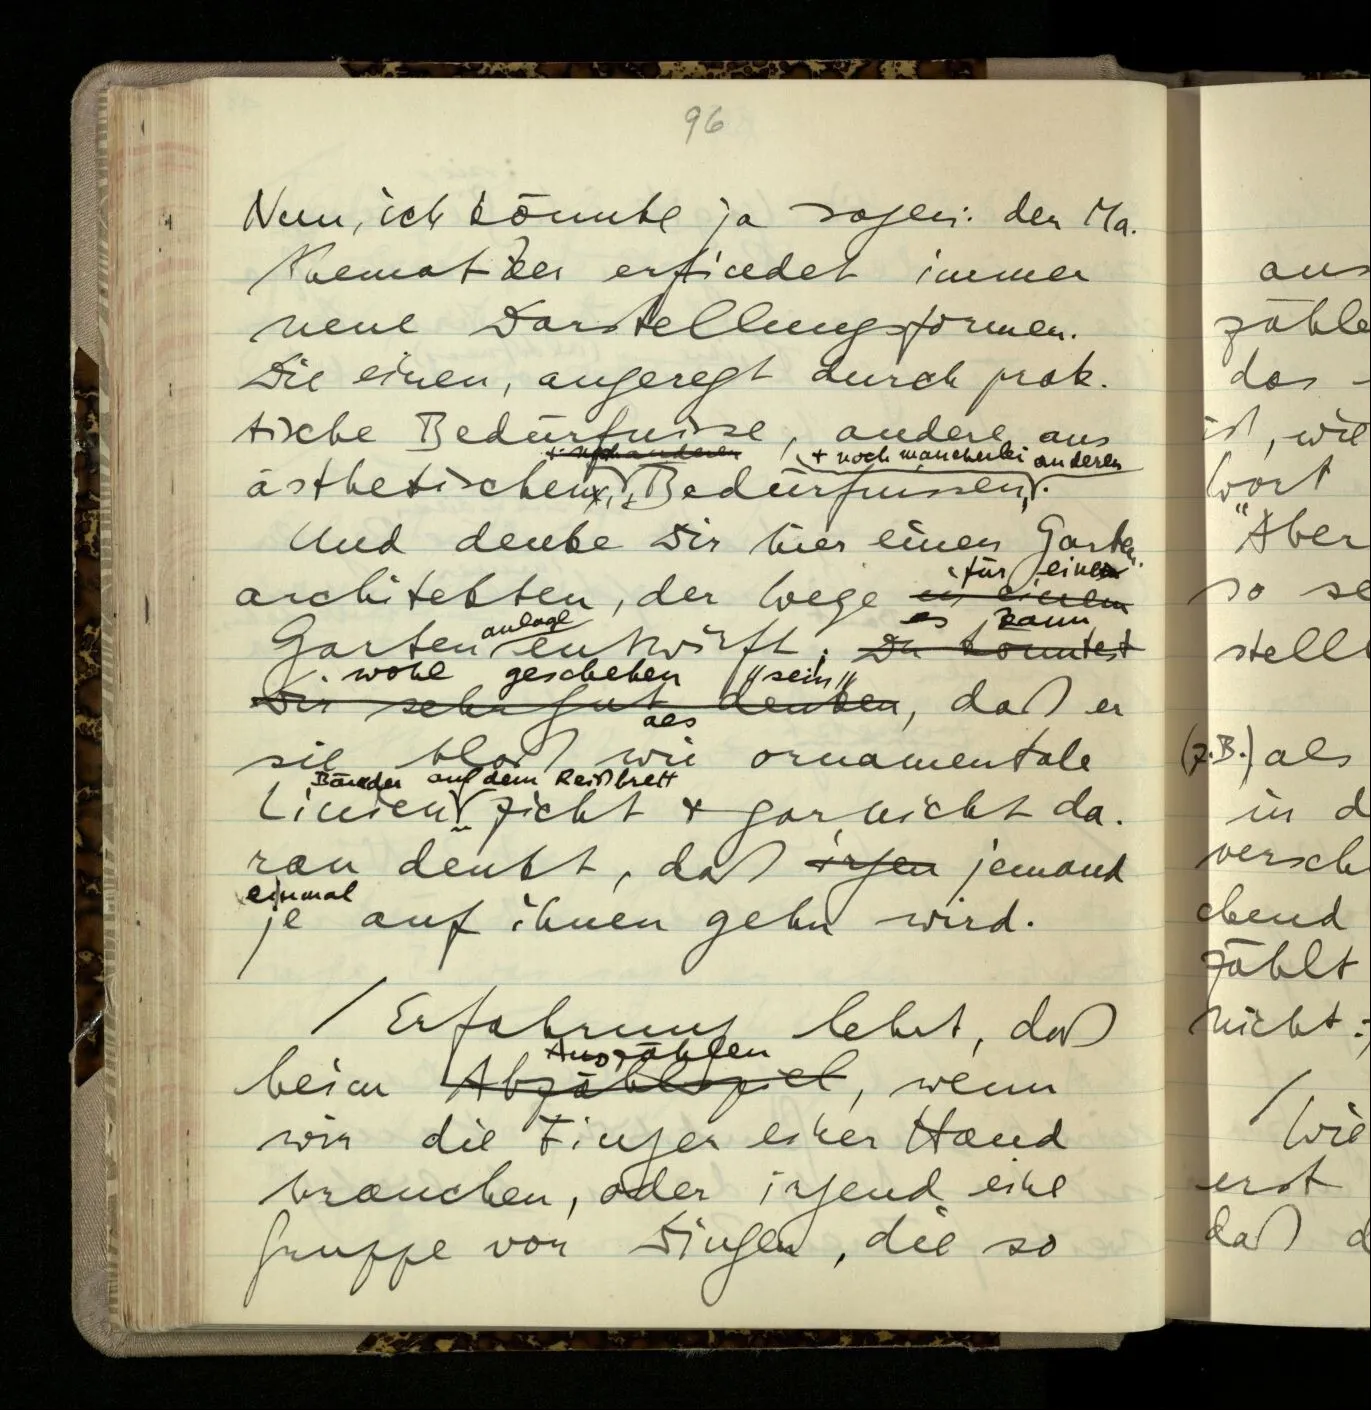 96
Nun, ich könnte ja sagen: der Ma-
thematiker erfindet immer
neue Darstellungsformen.
Die einen, angeregt durch prak-
tische Bedürfnisse, andere aus
+ noch anderen + noch mancherlei anderen
ästhetischen, Bedürfnissen.
Und denke Dir hier einen Garten-
für einen
architekten, der Wege in einem
anlage es kann
Garten entwirft. Du könntest
wohl geschehen "sein"
Dir sehr gut denken, daß er
als
sie bloß wie ornamentale
Bänder auf dem Reißbrett
Linien zieht + gar nicht da-
ran denkt, daß irgen jemand
einmal
je auf ihnen gehn wird.
/ Erfahrung lehrt, daß
Auszählen
beim Abzählspiel, wenn
wir die Finger einer Hand
brauchen, oder irgend eine
Gruppe von Dingen, die so
aus
zähle
das
ist, wie
Wort
"Aber
so se
stell
(z.B.) als
in d
versch
chend
zählt
nicht:
/ Wie
erst
daß d